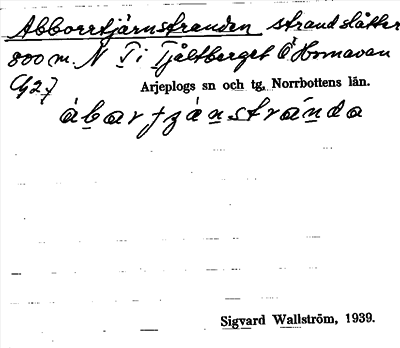 Abborrtjärnstranden strandslåtter
800 m. N T i Tjåltberget Ö Hornavan
Arjeplogs sn och tg, Norrbottens län.
Sigvard Wallström, 1939.